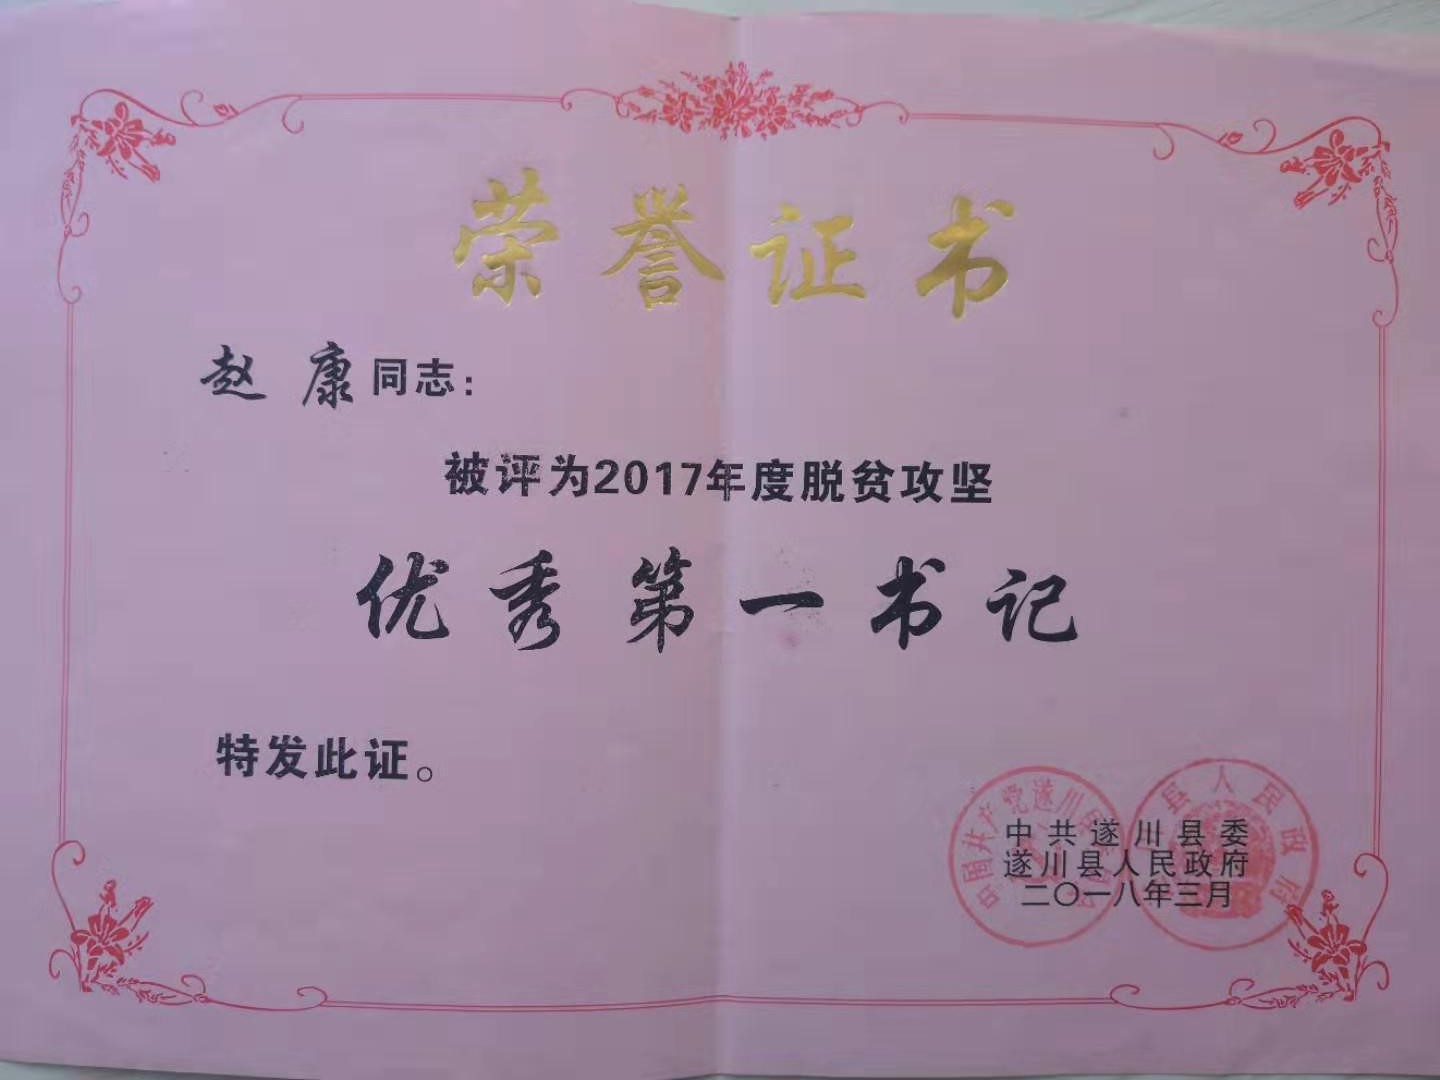 荣誉证书
赵康同志：
被评为2017年度脱贫攻坚
优秀第一书记
特发此证。
中共遂川县委
遂川县人民政府
二〇一八年三月